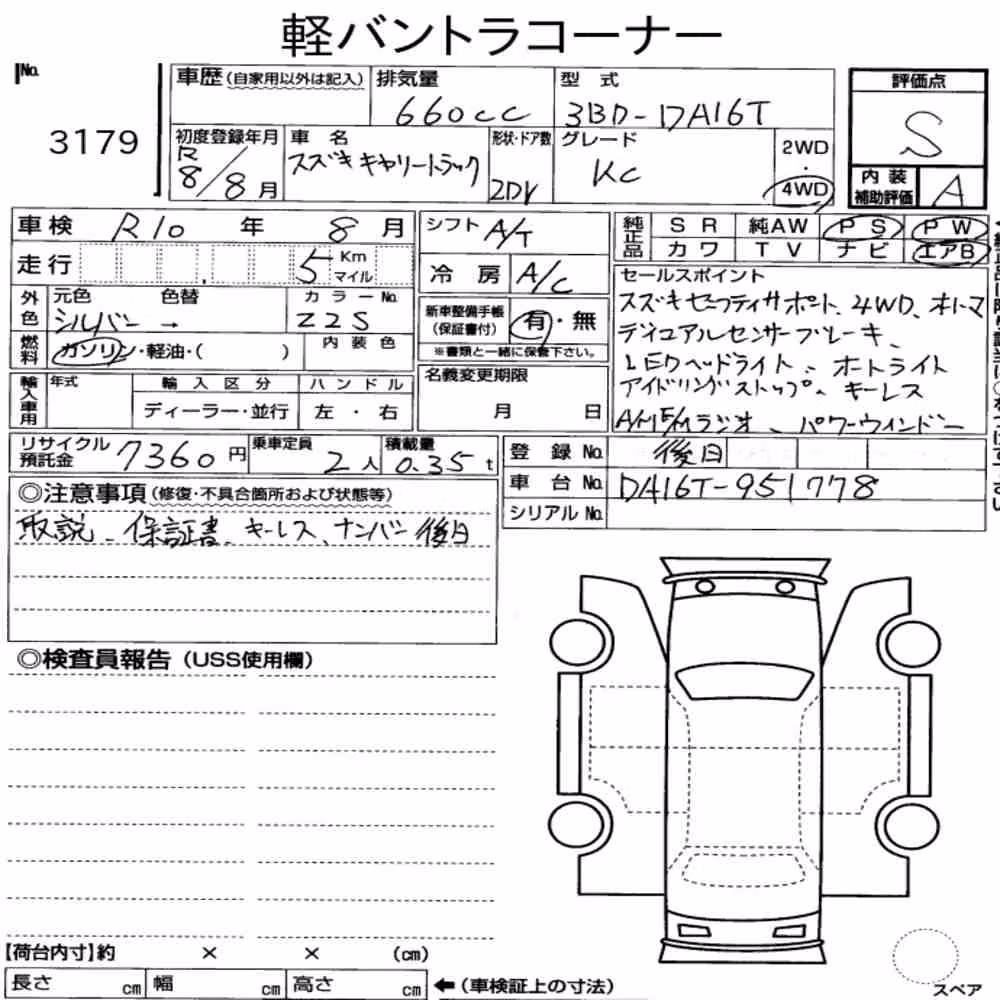 軽バントラコーナー
No.
3179
車歴(自家用以外は記入)
排気量
660cc
型 式
3BD-DA16T
評価点
S
内装補助評価
A
初度登録年月
R8/8月
車 名
スズキキャリートラック
形状・ドア数
2DV
グレード
KC
2WD・4WD
車検 R10 年 8 月
走行 5 Km マイル
シフト A/T
冷 房 A/C
純正品 SR 純AW PS PW
カワ TV ナビ エアB
外色 元色 色替 カラーNo.
シルバー → Z2S
燃料 ガソリン・軽油・( ) 内装色
新車整備手帳(保証書付) 有・無
※書類と一緒に保管下さい。
セールスポイント
スズキセーフティサポート、4WD、オートマ
デュアルセンサーブレーキ、
LEDヘッドライト、オートライト
アイドリングストップ、キーレス
AM/FMラジオ、パワーウインドー
輸入車用 年式 輸入区分 ハンドル
ディーラー・並行 左・右
名義変更期限
月 日
リサイクル預託金 7360円
乗車定員 2人
積載量 0.35t
登 録 No. 後日
車 台 No. DA16T-951778
シリアルNo.
◎注意事項(修復・不具合箇所および状態等)
取説、保証書、キーレス、ナンバー後日
◎検査員報告(USS使用欄)
【荷台内寸】約 × × (cm)
長さ cm 幅 cm 高さ cm ←(車検証上の寸法)
スペア